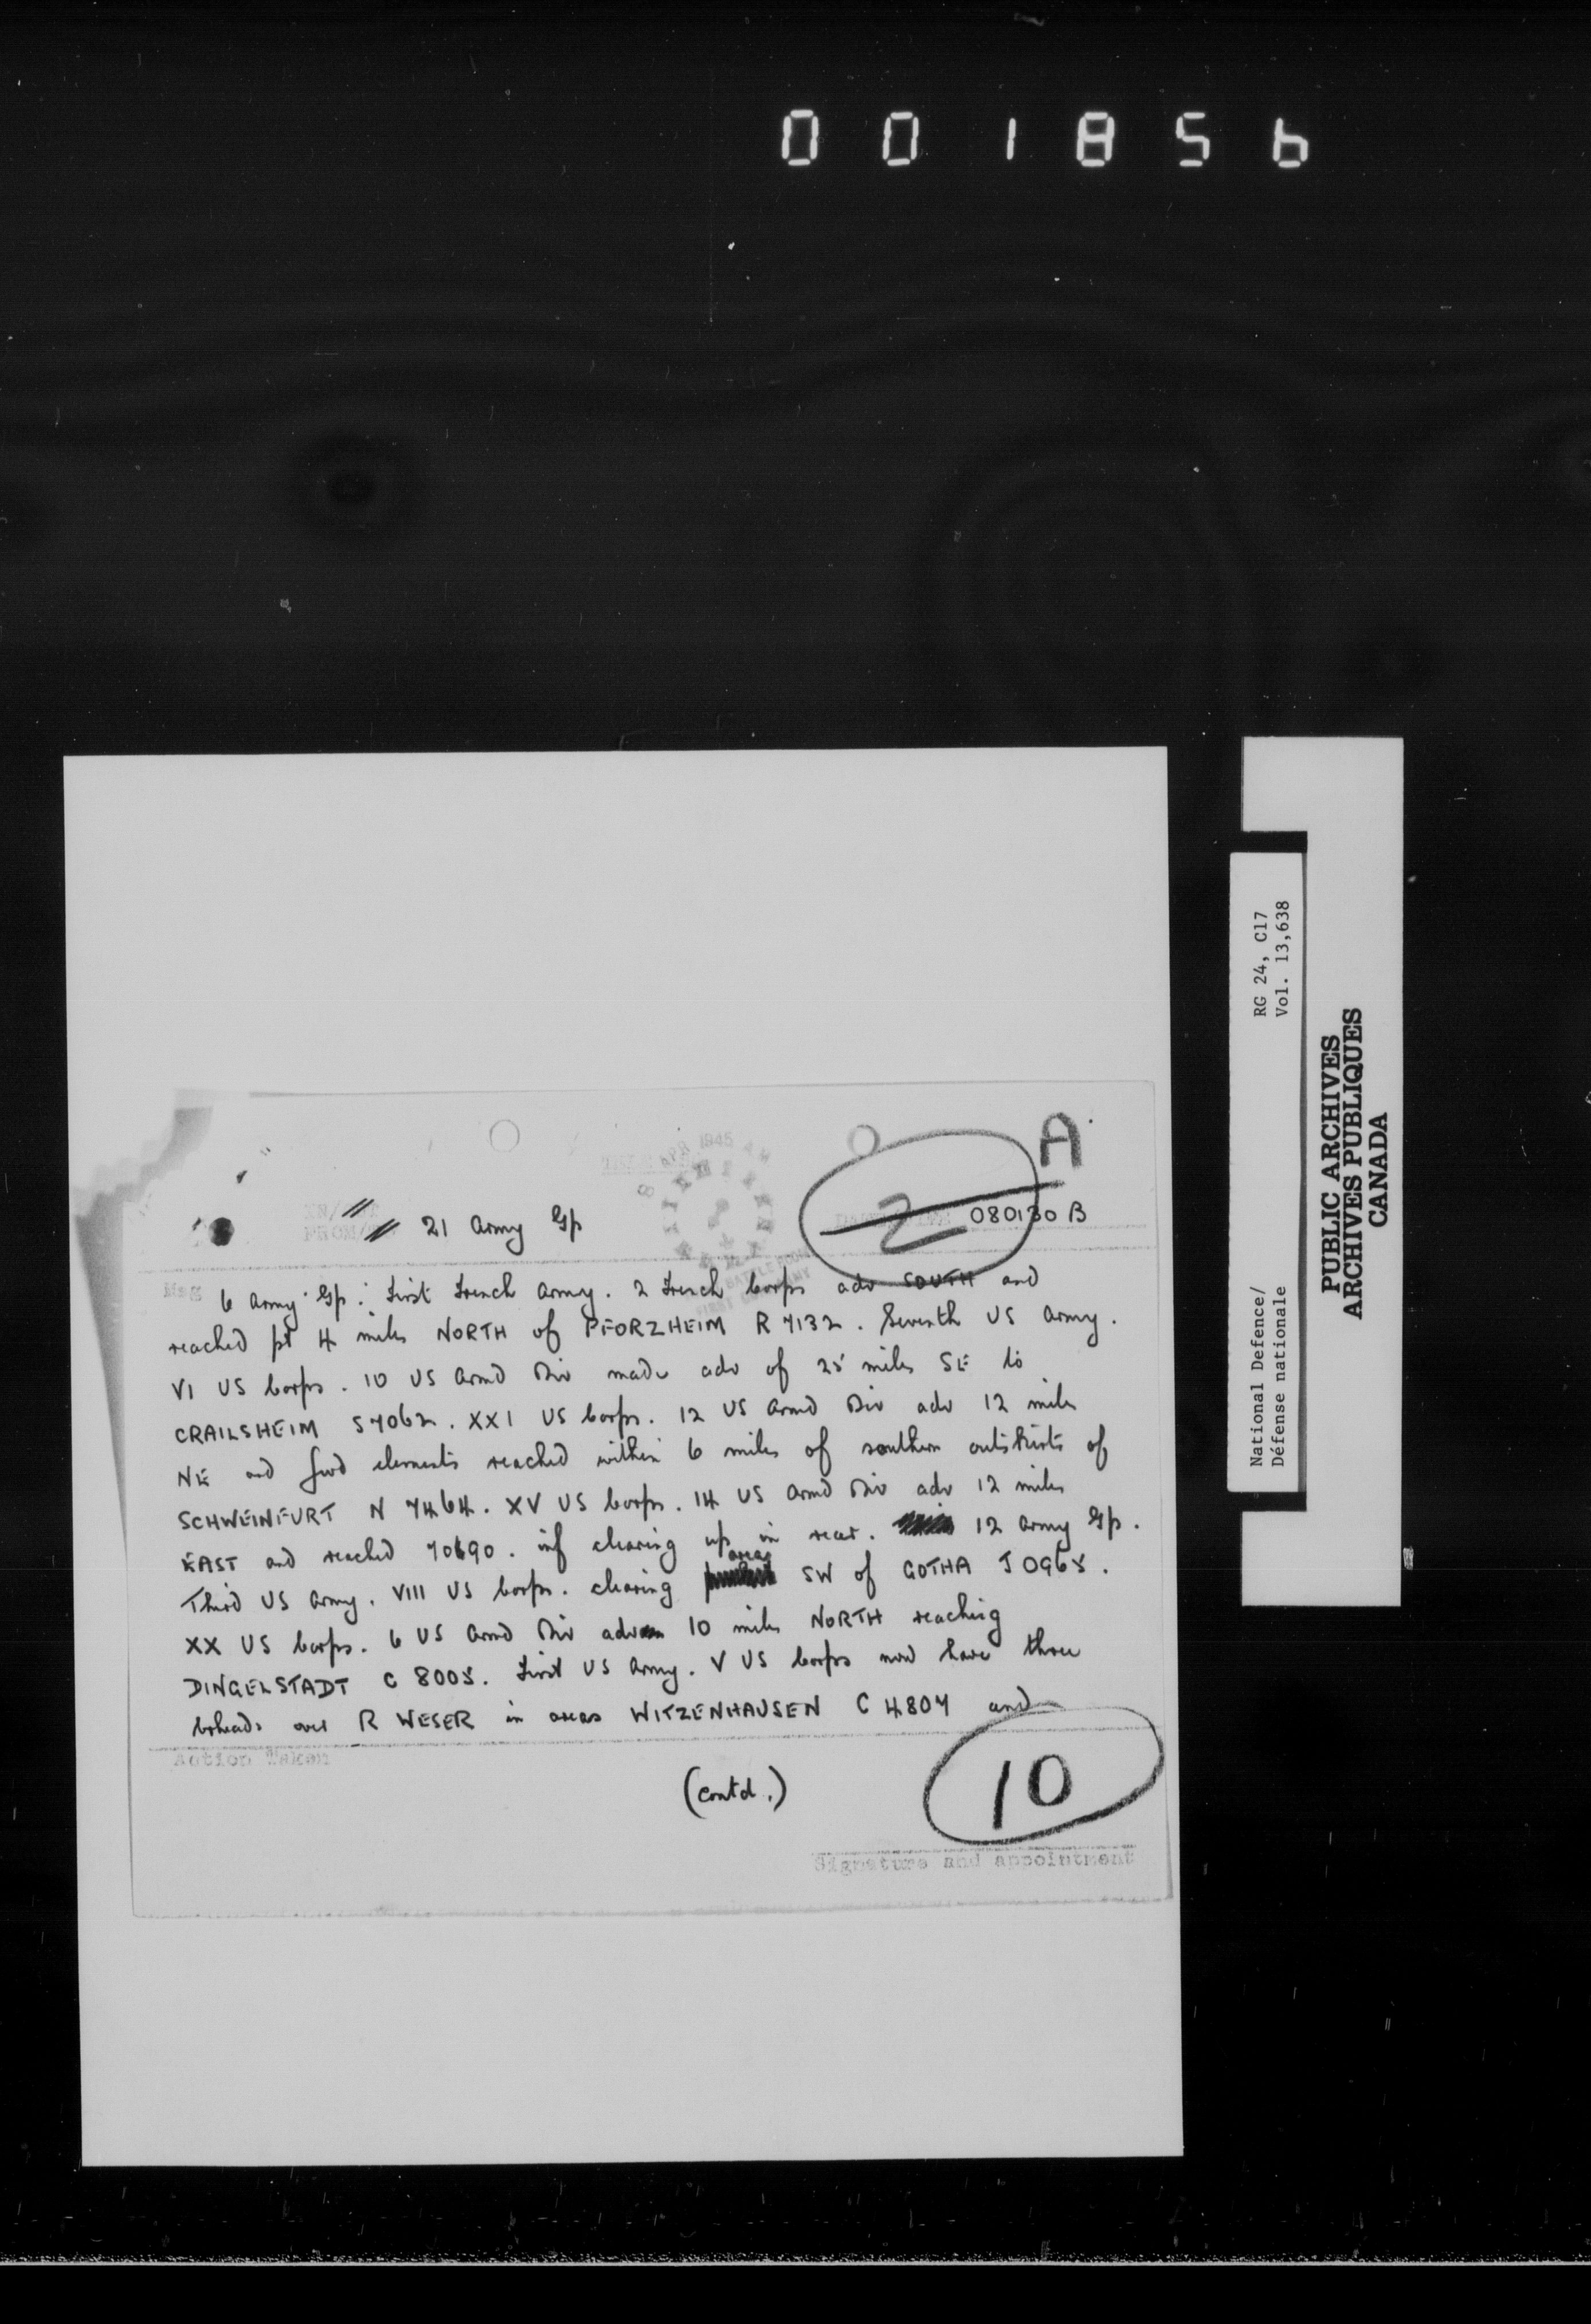 001856
A
8 APR 1945
21 Army Gp
2
080130 B
6 Army Gp : First French Army. 2 French Corps adv SOUTH and
reached pt 4 miles NORTH of PFORZHEIM R 7132. Seventh US Army.
VI US Corps. 10 US Armd Div made adv of 25 miles SE to
CRAILSHEIM S 7062. XXI US Corps. 12 US Armd Div adv 12 miles
NE and fwd elements reached within 6 miles of southern outskirts of
SCHWEINFURT N 7464. XV US Corps. 14 US Armd Div adv 12 miles
EAST and reached 70690. inf clearing up in rear. 12 Army Gp.
Third US Army. VIII US Corps. clearing areas SW of GOTHA J 0965.
XX US Corps. 6 US Armd Div adv 10 miles NORTH reaching
DINGELSTADT C 8005. First US Army. V US Corps now have three
brheads over R WESER in areas WITZENHAUSEN C 4807 and
Action Taken
(contd.)
10
Signature and appointment
RG 24, C17
Vol. 13,638
National Defence/
Défense nationale
PUBLIC ARCHIVES
ARCHIVES PUBLIQUES
CANADA